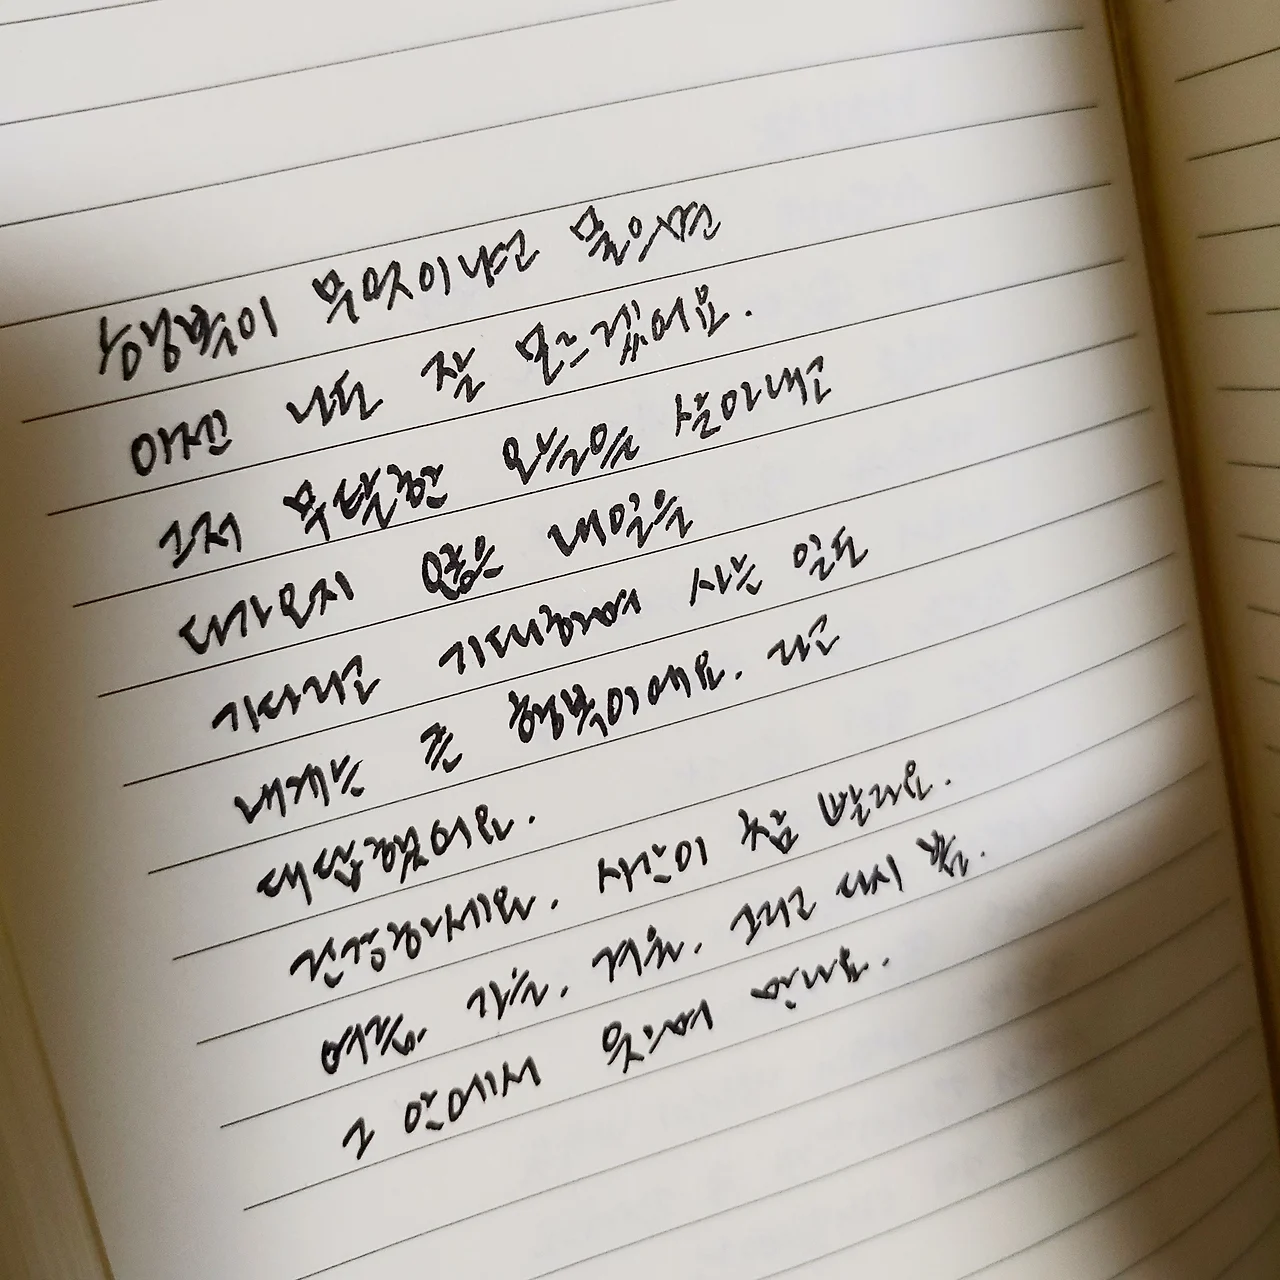 행복이 무엇이냐고 물으면
아직 나도 잘 모르겠어요.
그저 무탈한 오늘을 살아내고
다가오지 않은 내일을
기다리고 기대하며 사는 일도
내게는 큰 행복이에요. 라고
대답했어요.
건강하세요. 시간이 참 빨라요.
여름, 가을, 겨울, 그리고 다시 봄.
그 안에서 웃으며 만나요.